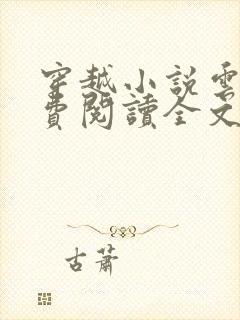 穿越小說雲
費閱讀全文
古蕭